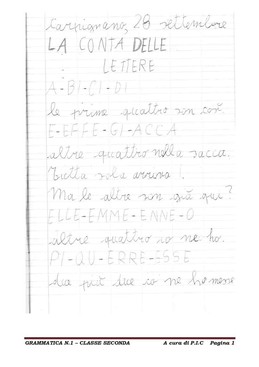 Carpignano, 28 settembre
LA CONTA DELLE
LETTERE
A-BI-CI-DI
le prime quattro son così
E-EFFE-GI-ACCA
altre quattro nella sacca.
Tutta sola arriva I.
Ma le altre son già qui?
ELLE-EMME-ENNE-O
altre quattro io ne ho.
PI-QU-ERRE-ESSE
due ne ho messe
GRAMMATICA N.1 – CLASSE SECONDA A cura di P.I.C Pagina 1